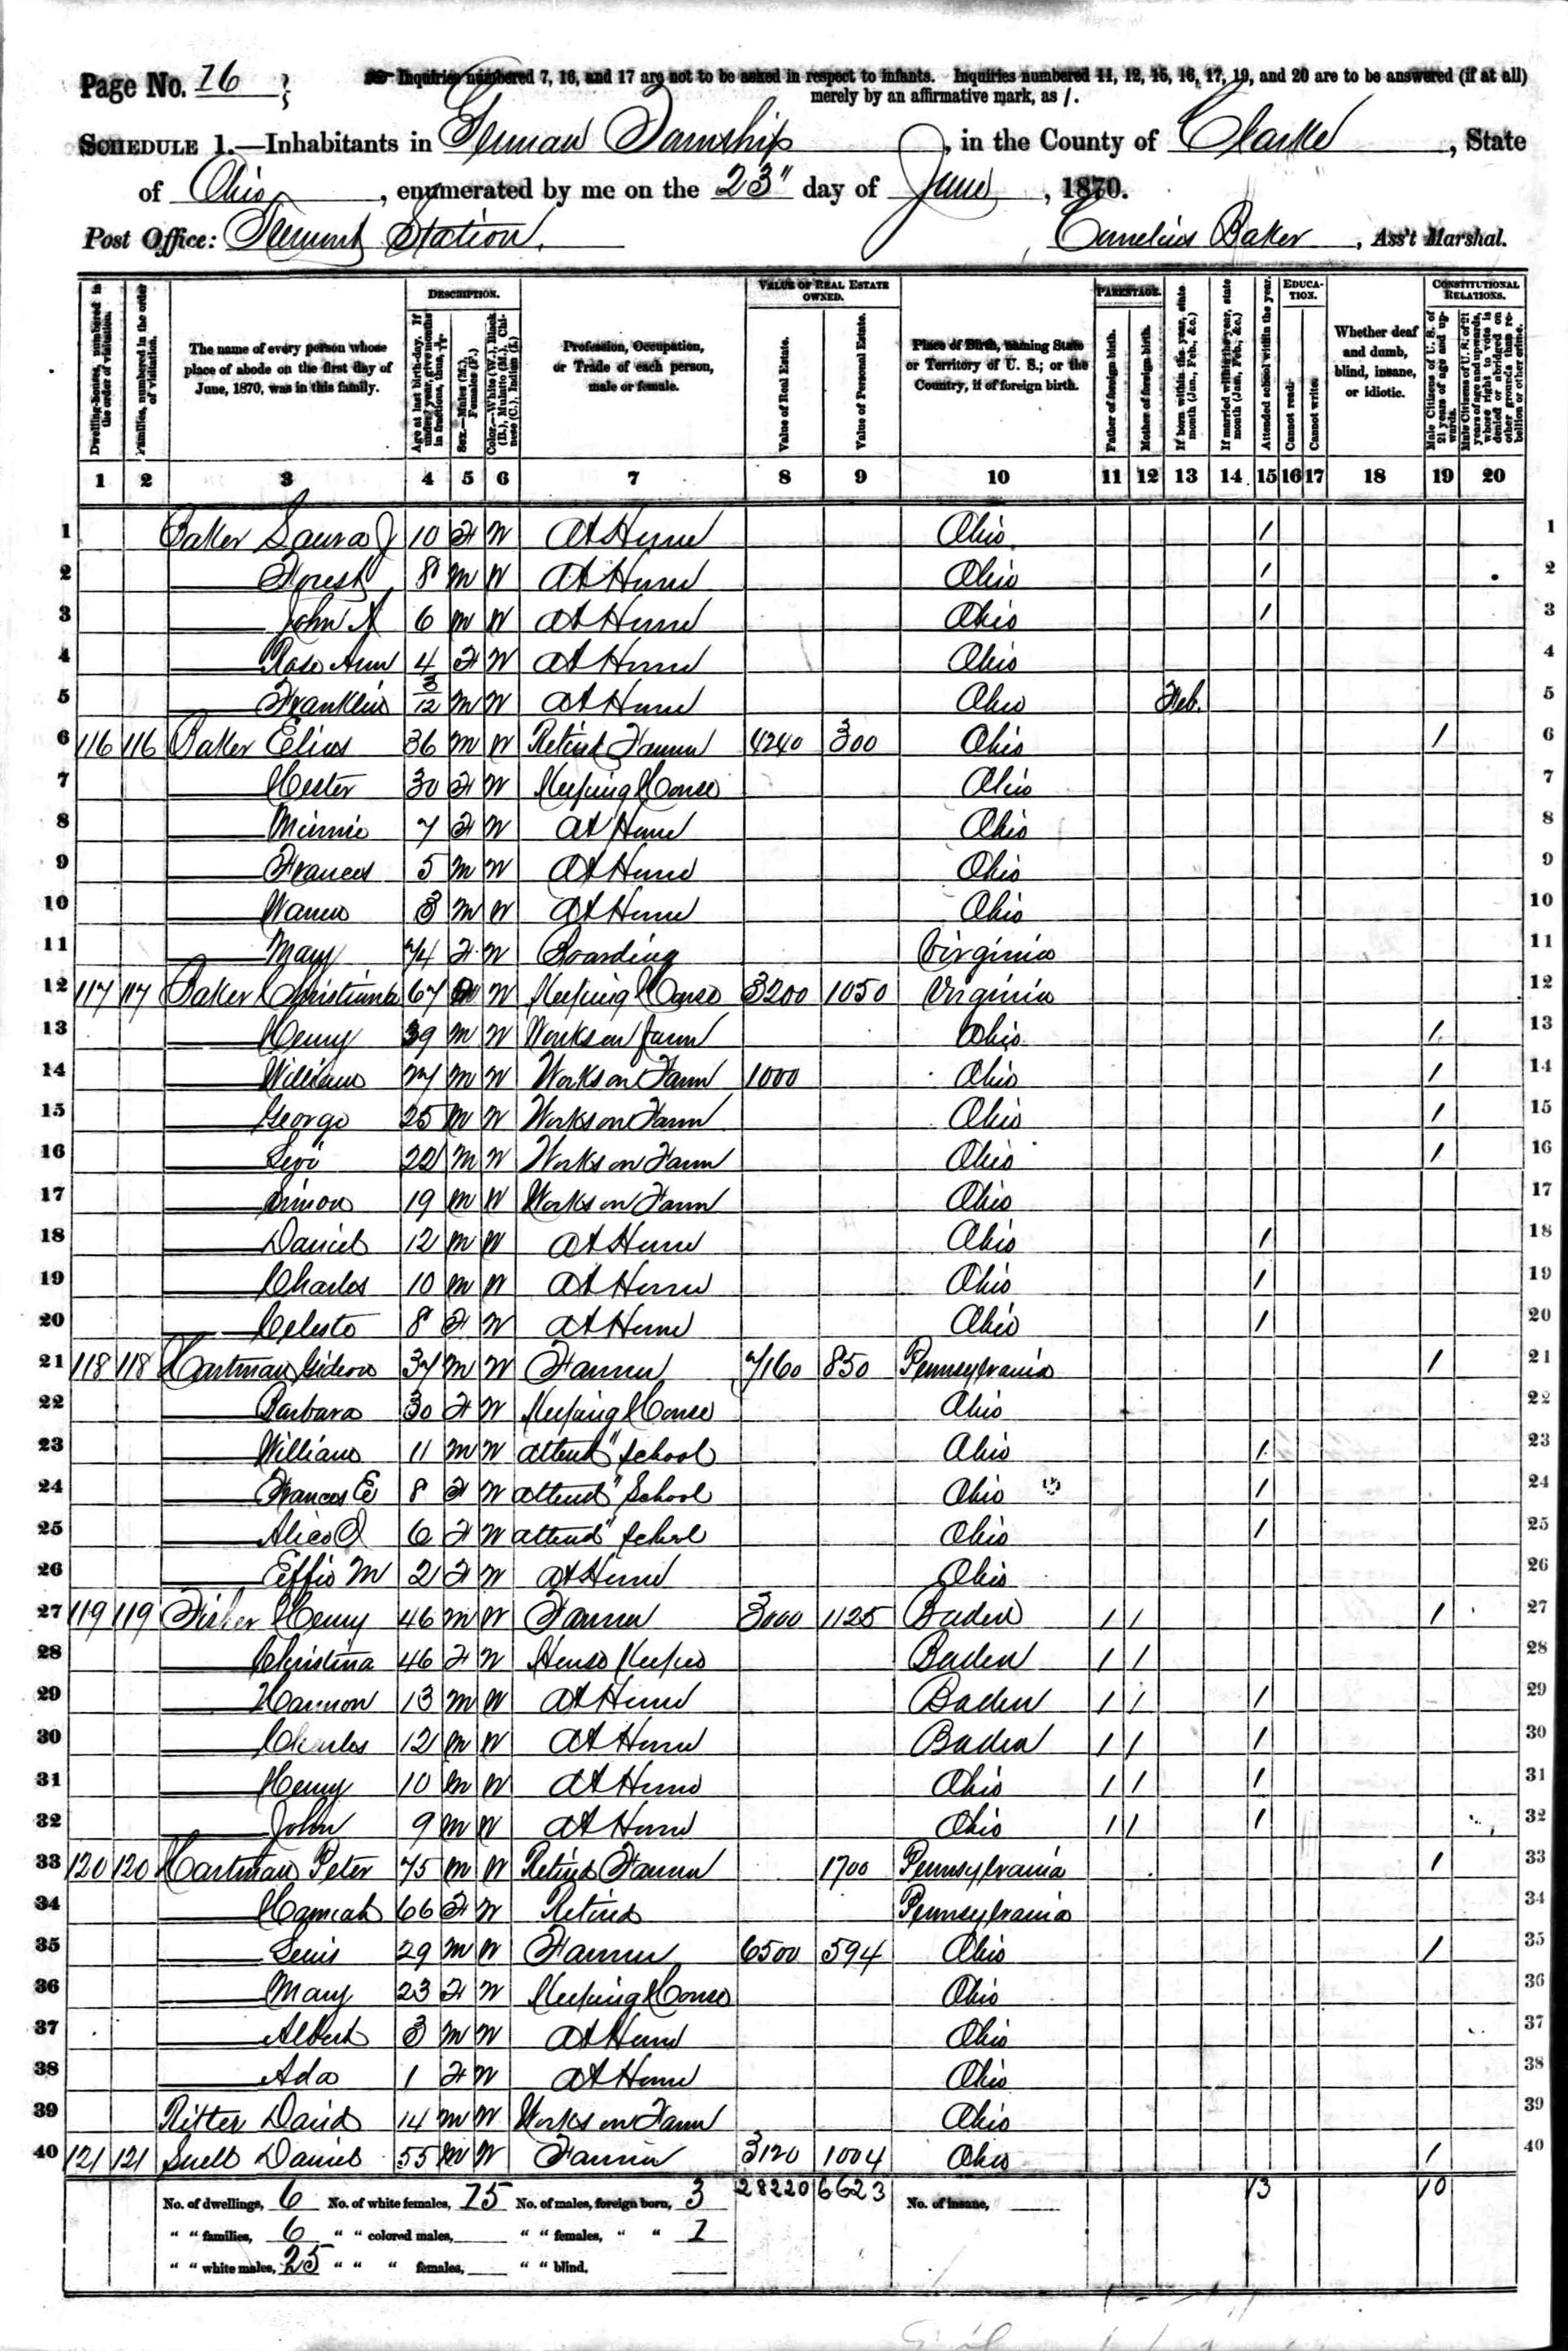 Page No. 16
Inquiries numbered 7, 16, and 17 are not to be asked in respect to infants. Inquiries numbered 11, 12, 15, 16, 17, 19, and 20 are to be answered (if at all)
merely by an affirmative mark, as /.
SCHEDULE 1.—Inhabitants in German Township, in the County of Clarke, State
of Ohio, enumerated by me on the 23" day of June, 1870.
Post Office: Tremont Station. Cornelius Baker, Ass't Marshal.
Dwelling-houses, numbered in the order of visitation.
Families, numbered in the order of visitation.
The name of every person whose place of abode on the first day of June, 1870, was in this family.
DESCRIPTION.
Age at last birth-day. If under 1 year, give months in fractions, thus, 3/12
Sex.—Males (M.), Females (F.)
Color.—White (W.), Black (B.), Mulatto (M.), Chinese (C.), Indian (I.)
Profession, Occupation, or Trade of each person, male or female.
VALUE OF REAL ESTATE OWNED.
Value of Real Estate.
Value of Personal Estate.
Place of Birth, naming State or Territory of U. S.; or the Country, if of foreign birth.
PARENTAGE.
Father of foreign birth.
Mother of foreign birth.
If born within the year, state month (Jan., Feb., &c.)
If married within the year, state month (Jan., Feb., &c.)
Attended school within the year.
EDUCATION.
Cannot read.
Cannot write.
Whether deaf and dumb, blind, insane, or idiotic.
CONSTITUTIONAL RELATIONS.
Male Citizens of U. S. of 21 years of age and upwards.
Male Citizens of U. S. of 21 years of age and upwards, whose right to vote is denied or abridged on other grounds than rebellion or other crime.
1 2 3 4 5 6 7 8 9 10 11 12 13 14 15 16 17 18 19 20
1 Baker Laura J 10 F W At Home Ohio / 1
2 Forest 8 M W At Home Ohio / 2
3 John A 6 M W At Home Ohio / 3
4 Rose Ann 4 F W At Home Ohio 4
5 Franklin 3/12 M W At Home Ohio Feb. 5
6 116 116 Baker Elias 36 M W Retired Farmer 4240 300 Ohio / 6
7 Hester 30 F W Keeping House Ohio 7
8 Minnie 7 F W At Home Ohio 8
9 Frances 5 M W At Home Ohio 9
10 Warren 3 M W At Home Ohio 10
11 Mary 74 F W Boarding Virginia 11
12 117 117 Baker Christiana 67 W Keeping House 3200 1050 Virginia 12
13 Henry 39 M W Works on farm Ohio / 13
14 William 27 M W Works on Farm 1000 Ohio / 14
15 George 25 M W Works on Farm Ohio / 15
16 Levi 22 M W Works on Farm Ohio / 16
17 Simon 19 M W Works on Farm Ohio 17
18 Daniel 12 M W At Home Ohio / 18
19 Charles 10 M W At Home Ohio / 19
20 Celesta 8 F W At Home Ohio / 20
21 118 118 Hartman Gideon 37 M W Farmer 7160 850 Pennsylvania / 21
22 Barbara 30 F W Keeping House Ohio 22
23 William 11 M W attend" school Ohio / 23
24 Frances E 8 F W attend" School Ohio / 24
25 Alice 6 F W attend" school Ohio / 25
26 Effie M 2 F W At Home Ohio 26
27 119 119 Fisher Henry 46 M W Farmer 3000 1125 Baden / / / 27
28 Christina 46 F W House Keeper Baden / / 28
29 Harmon 13 M W At Home Baden / / / 29
30 Charles 12 M W At Home Baden / / / 30
31 Henry 10 M W At Home Ohio / / / 31
32 John 9 M W At Home Ohio / / / 32
33 120 120 Hartman Peter 75 M W Retired Farmer 1700 Pennsylvania / 33
34 Hannah 66 F W Retired Pennsylvania 34
35 Lewis 29 M W Farmer 6500 594 Ohio / 35
36 Mary 23 F W Keeping House Ohio 36
37 Albert 3 M W At Home Ohio 37
38 Ada 1 F W At Home Ohio 38
39 Ritter David 14 M W Works on Farm Ohio 39
40 121 121 Snell Daniel 55 M W Farmer 3120 1004 Ohio / 40
No. of dwellings, 6 No. of white females, 15 No. of males, foreign born, 3 28220 6623 No. of insane, 13 10
" " families, 6 " " colored males, " " females, " " 1
" " white males, 25 " " " females, " " blind.